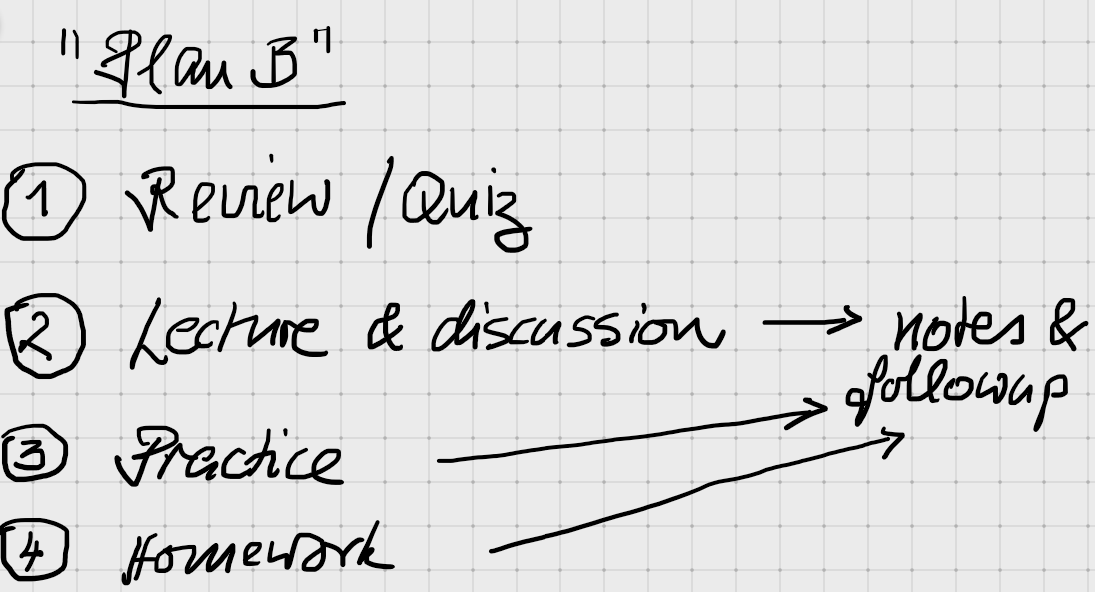 "Plan B"
1 Review / Quiz
2 Lecture & discussion → notes &
followup
3 Practice →
4 Homework →